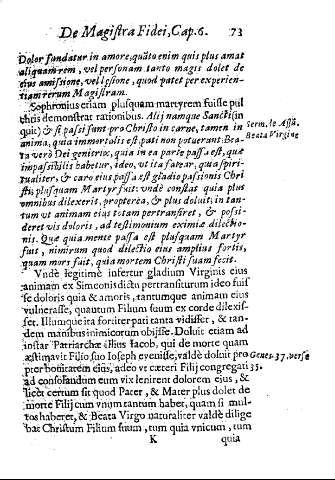 De Magistra Fidei, Cap. 6. 73
Dolor fundatur in amore, quāto enim quis plus amat
aliquam rem, vel personam tanto magis dolet de
eius amissione, vel lesione, quod patet per experien-
tiam rerum Magistram.
Sophronius etiam plusquam martyrem fuisse pul
chrè demonstrat rationibus. Alij namque Sancti (in
quit) & si passi sunt pro Christo in carne, tamen in
anima, quia immortalis est pati non potuerunt: Bea-
ta verò Dei genitrix, quia in ea parte passa est, quæ
impassibilis habetur, ideo, ut ita fatear, quia spiri-
tualiter, & caro eius passa est gladio passionis Chri
sti; plusquam Martyr fuit: vndè constat quia plus
omnibus dilexerit, propterea, & plus doluit; in tan-
tum vt animam eius totam pertransiret, & possi-
deret vis doloris, ad testimonium eximiæ dilectio-
nis. Quæ quia mente passa est plusquam Martyr
fuit, nimirum quod dilectio eius amplius fortis,
quam mors fuit, quia mortem Christi suam fecit.
Serm. de Assũ.
Beata Virgine
Vndè legitimè infertur gladium Virginis eius
animam ex Simeonis dictu pertransiturum ideo fuis
se doloris quia & amoris, tantumque animam eius
vulnerasse, quantum Filium suum ex corde dilexis-
set. Illumque ita fortiter pati tanta vidisset, & tan-
dem manibus inimicorum obijsse. Doluit etiam ad
instar Patriarchæ illius Iacob, qui de morte quam
æstimavit Filio suo Ioseph evenisse, valdè doluit pro
pter bonitatem eius, adeo vt cæteri Filij congregati
ad consolandum eum vix lenirent dolorem eius, &
licèt certum sit quod Pater, & Mater plus dolet de
morte Filij cum vnum tantum habet, quam si mul-
tos haberet, & Beata Virgo naturaliter valdè dilige
bat Christum Filium suum, tum quia vnicum, tum
Genes. 37. verse
35.
K quia